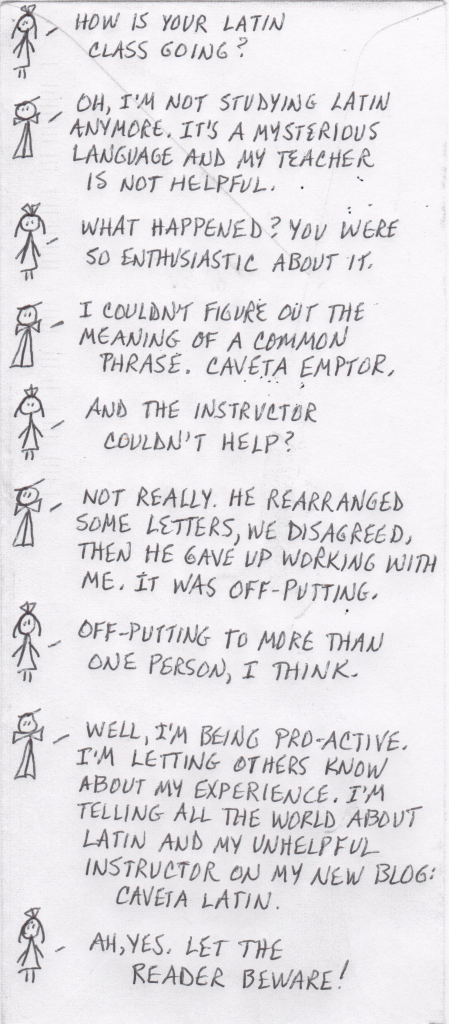 HOW IS YOUR LATIN
CLASS GOING?
OH, I'M NOT STUDYING LATIN
ANYMORE. IT'S A MYSTERIOUS
LANGUAGE AND MY TEACHER
IS NOT HELPFUL.
WHAT HAPPENED? YOU WERE
SO ENTHUSIASTIC ABOUT IT.
I COULDN'T FIGURE OUT THE
MEANING OF A COMMON
PHRASE. CAVETA EMPTOR.
AND THE INSTRUCTOR
COULDN'T HELP?
NOT REALLY. HE REARRANGED
SOME LETTERS, WE DISAGREED,
THEN HE GAVE UP WORKING WITH
ME. IT WAS OFF-PUTTING.
OFF-PUTTING TO MORE THAN
ONE PERSON, I THINK.
WELL, I'M BEING PRO-ACTIVE.
I'M LETTING OTHERS KNOW
ABOUT MY EXPERIENCE. I'M
TELLING ALL THE WORLD ABOUT
LATIN AND MY UNHELPFUL
INSTRUCTOR ON MY NEW BLOG:
CAVETA LATIN.
AH, YES. LET THE
READER BEWARE!